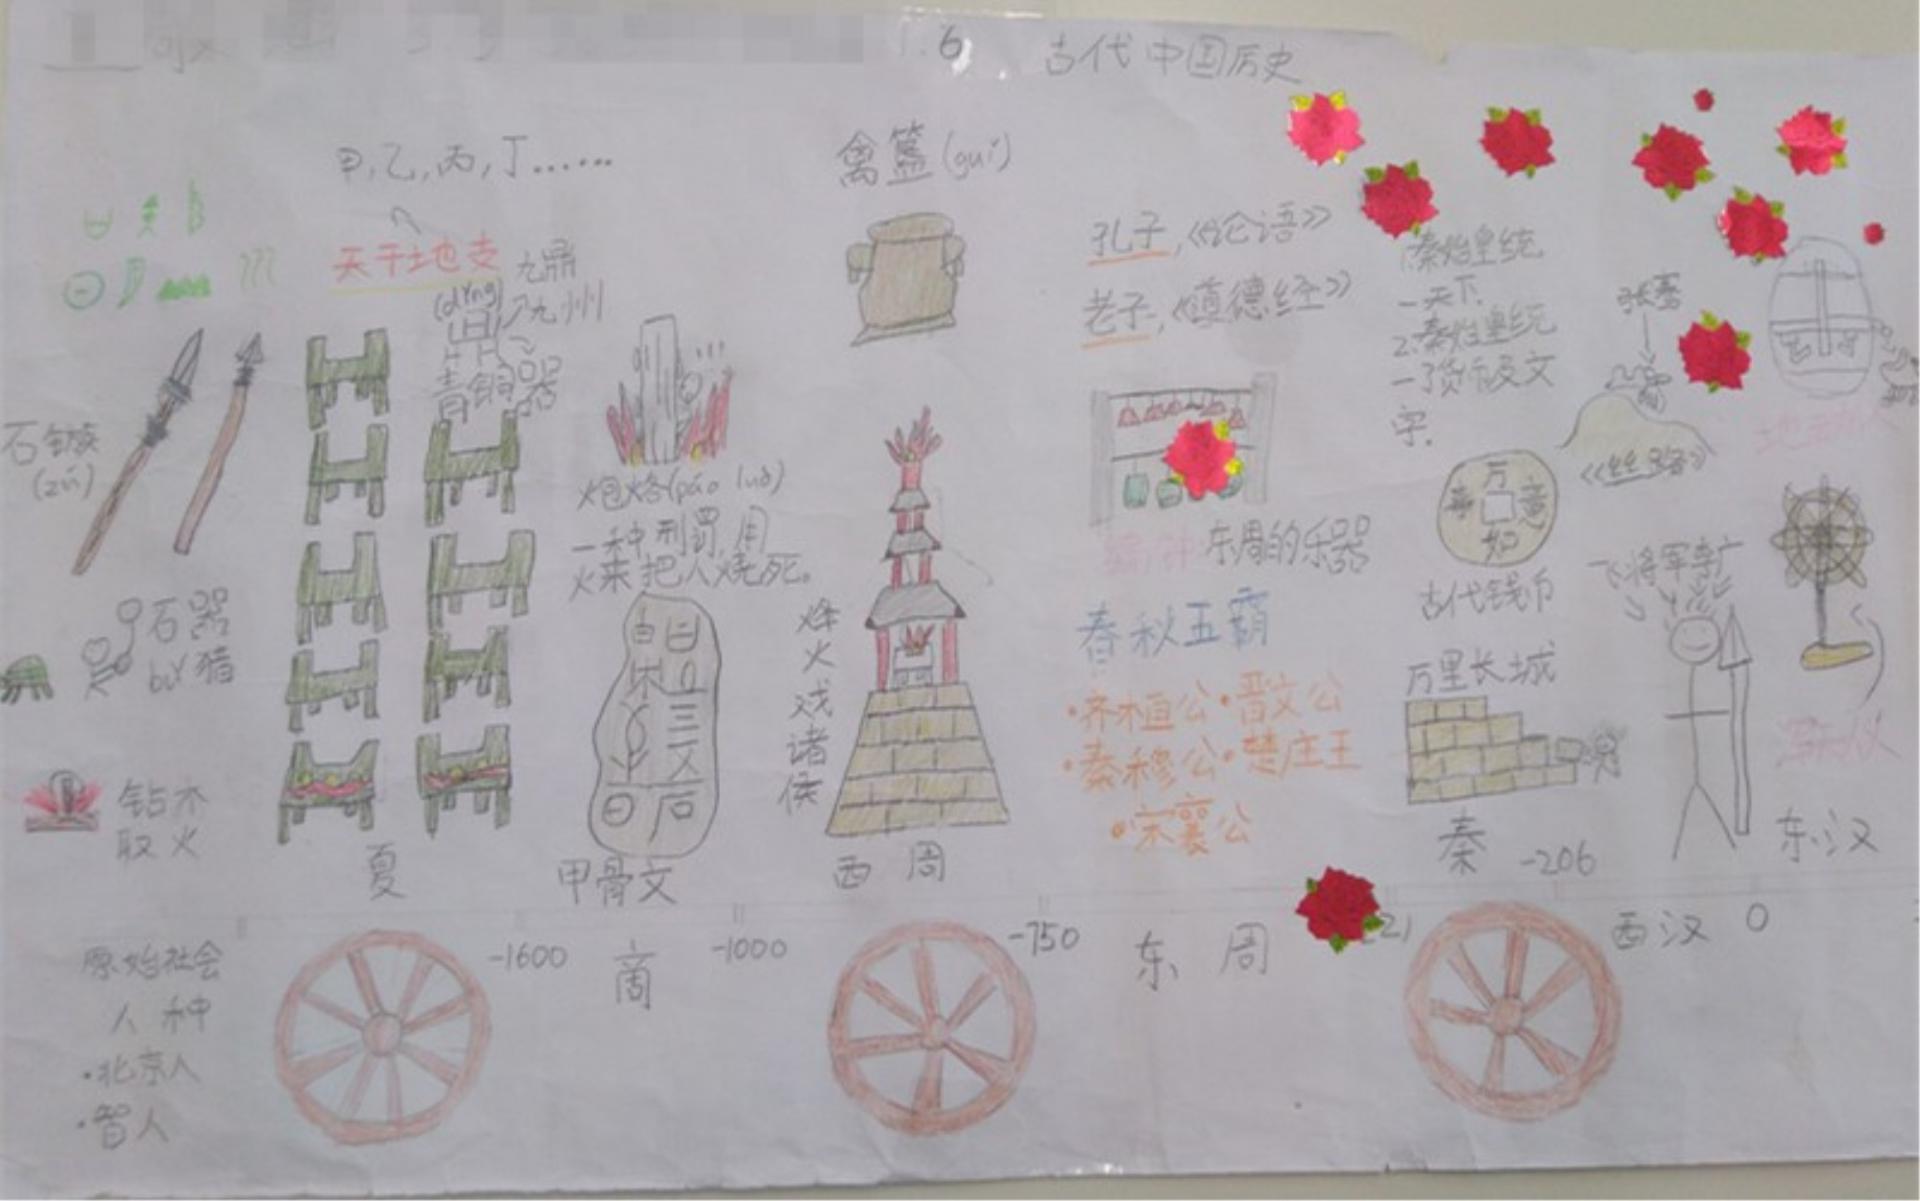 6
古代中国历史
甲,乙,丙,丁......
天干地支
九鼎
九州
(dǐng)
鼎
青铜器
石镞
(zú)
石器
钻木
取火
夏
炮烙(páo luò)
一种刑罚,用
火来把人烧死。
甲骨文
禽簋(guǐ)
烽
火
戏
诸
侯
西周
孔子,《论语》
老子,《道德经》
编钟 东周的乐器
春秋五霸
·齐桓公·晋文公
·秦穆公·楚庄王
·宋襄公
1.秦始皇统
一天下.
2.秦始皇统
一了货币及文
字.
古代钱币
万里长城
秦 -206
张骞
《丝路》
飞将军李广
地动仪
浑天仪
东汉
原始社会
人种
·北京人
·智人
-1600
商
-1000
-750
东周
西汉
0